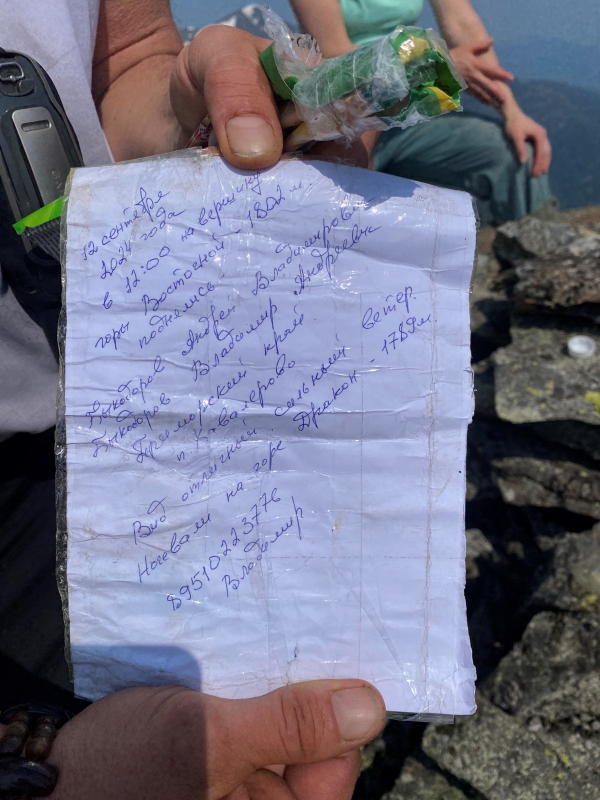 12 сентября
2024 года
в 12:00 на вершину
горы Востосной - 1802 м,
поднялись
Быкодоров Андрей Владимирович
Быкодоров Владимир Андреевич
Приморский край.
п. Кавалерово
Вид отличный. сильный ветер.
Ночевали на горе Дракон - 1789м
89510223776
Владимир